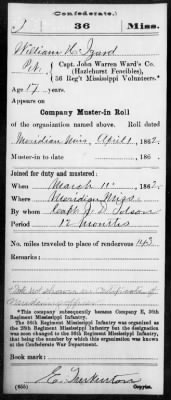 (Confederate.)
J 36 Miss.
William H. Izard
Pvt., Capt. John Warren Ward's Co.
(Hazlehurst Fencibles),
36 Reg't Mississippi Volunteers.*
Age 17 years.
Appears on
Company Muster-in Roll
of the organization named above. Roll dated
Meridian Miss, April 1, 1862.
Muster-in to date , 186 .
Joined for duty and mustered:
When March 11, 1862.
Where Meridian Miss
By whom Capt. J. D.
Period 12 months
No. miles traveled to place of rendezvous 143
Remarks:
not shown on Certificate of
*This company subsequently became Company E, 36th
Regiment Mississippi Infantry.
The 36th Regiment Mississippi Infantry was organized as
the 38th Regiment Mississippi Infantry but the designation
was soon changed to the 36th Mississippi Infantry, that
being the number by which this organization was known at
the Confederate War Department.
Book mark:
(655) Copyist.